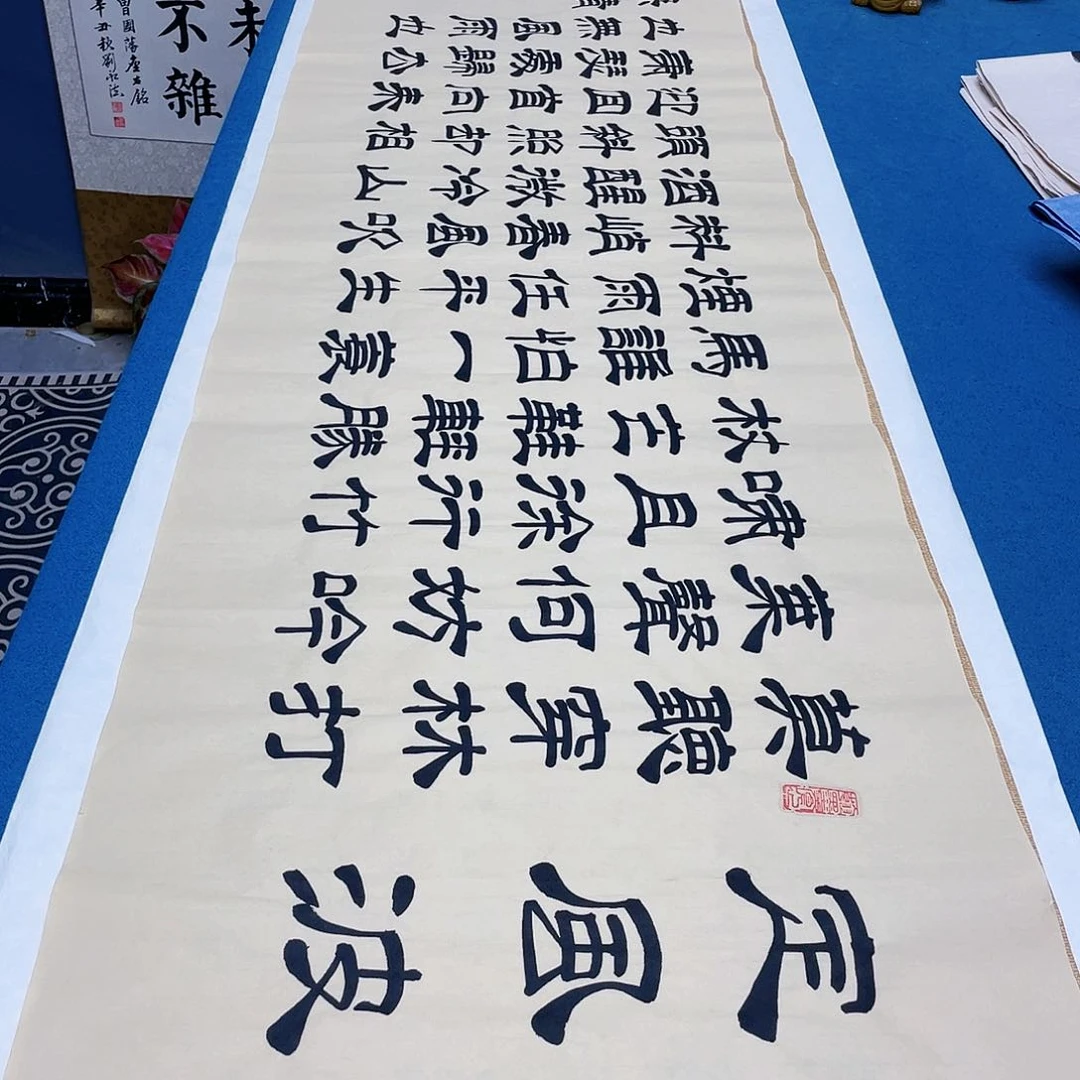 定風波
莫聽穿林打
葉聲何妨吟
嘯且徐行竹
杖芒鞋輕勝
馬誰怕一蓑
煙雨任平生
料峭春風吹
酒醒微冷山
頭斜照却相
迎回首向來
蕭瑟處歸去
也無風雨也
未
不雜
曾國藩座右銘
辛丑秋劉